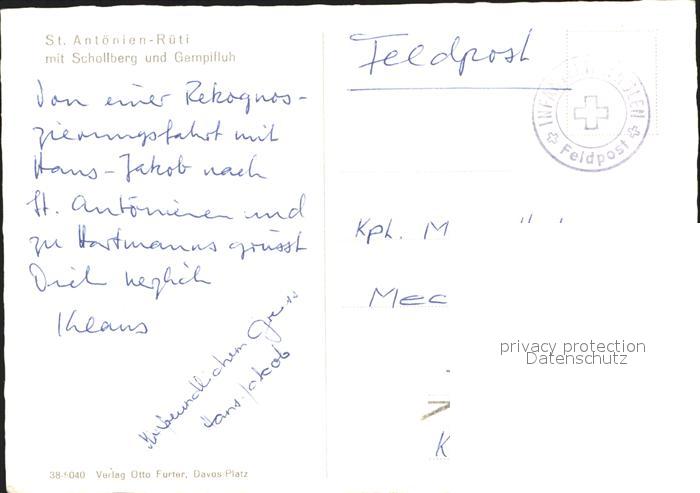 St. Antönien-Rüti
mit Schollberg und Gempifluh
Von einer Rekognos-
zierungsfahrt mit
Hans-Jakob nach
St. Antönienen und
zu Hartmanns grüsst
Dich herzlich
Klaus
Mit freundlichem Gruss
Hans-Jakob
38-5040 Verlag Otto Furter, Davos-Platz
Feldpost
INFANTERIE SCHULEN
Feldpost
Kpl. M
Mec
K
privacy protection
Datenschutz